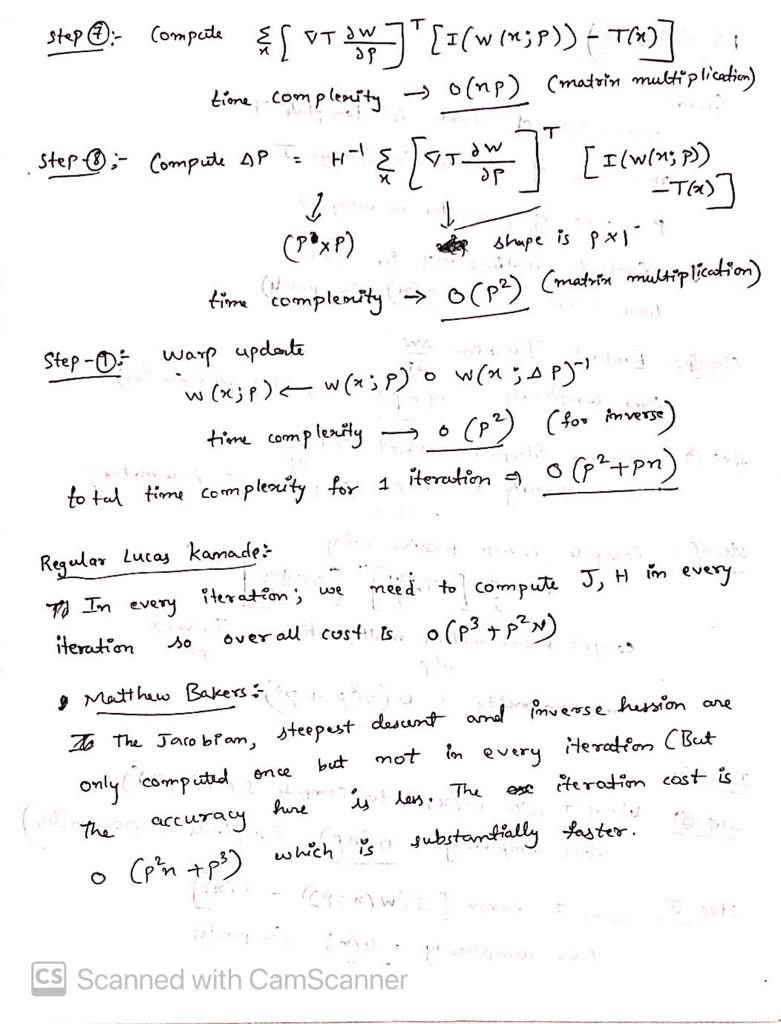 Step ⑦:- Compute Σx [∇T ∂W/∂P]^T [I(W(x;P)) - T(x)]
time complexity → O(np) (matrix multiplication)
Step ⑧:- Compute ΔP = H^-1 Σx [∇T ∂W/∂P]^T [I(W(x;P)) - T(x)]
(P×P) shape is P×1
time complexity → O(P²) (matrix multiplication)
Step-①:- warp update
W(x;P) ← W(x;P) o W(x;ΔP)^-1
time complexity → O(P²) (for inverse)
total time complexity for 1 iteration ⇒ O(P²+Pn)
Regular Lucas Kamade:-
In every iteration; we need to compute J, H in every
iteration so over all cost is O(P³+P²N)
Matthew Bakers:-
The Jacobian, steepest descent and inverse hession are
only computed once but not in every iteration (But
the accuracy here is less. The iteration cost is
O(P²n+P³) which is substantially faster.
CS Scanned with CamScanner